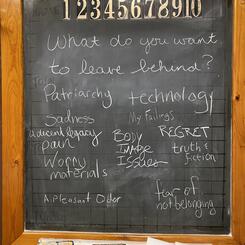 12345678910
What do you want
to leave behind?
Patriarchy technology
Sadness My failings
a decent legacy Body REGRET
pain Image truth &
Worry Issues fiction
materials
A Pleasant Odor fear of
not belonging